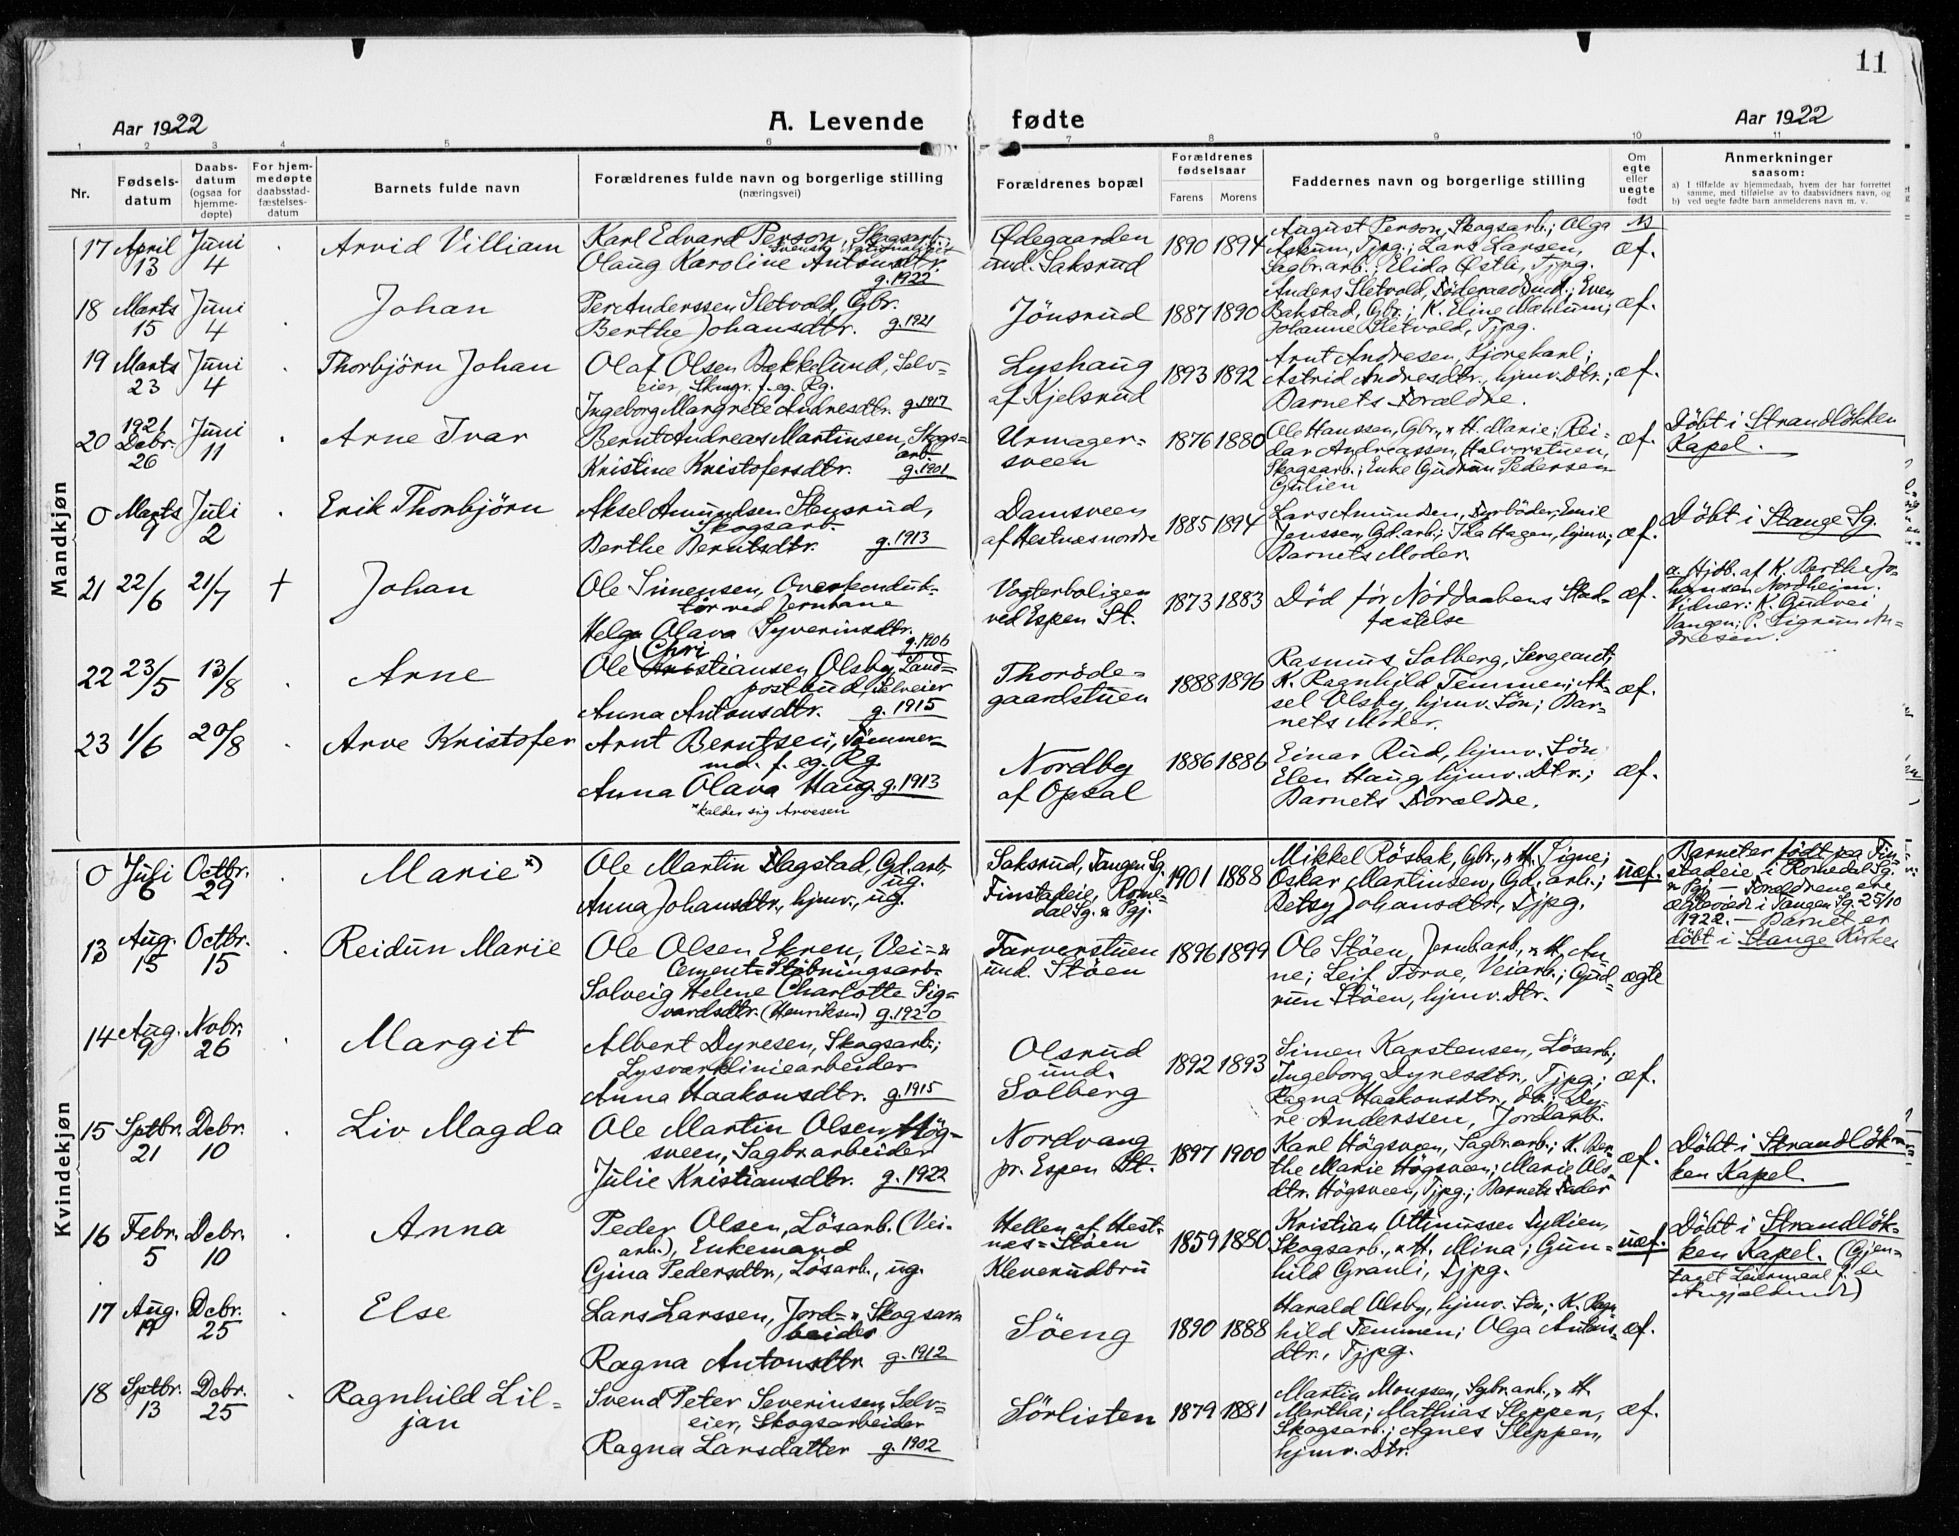 11
Aar 1922
A. Levende fødte
Aar 1922
1 2 3 4 5 6 7 8 9 10 11
Nr.
Fødsels-
datum
Daabs-
datum
(ogsaa for
hjemme-
døpte)
For hjem-
medøpte
daabsstad-
fæstelses-
datum
Barnets fulde navn
Forældrenes fulde navn og borgerlige stilling
(næringsvei)
Forældrenes bopæl
Forældrenes
fødselsaar
Farens Morens
Faddernes navn og borgerlige stilling
Om
egte
eller
uegte
født
Anmerkninger
saasom:
a) I tilfælde av hjemmedaab, hvem der har forrettet
samme, med tilføielse av to daabsvidners navn, og
b) ved uegte fødte barn anmelderens navn m. v.
Mandkjøn
17 April 13 Juni 4
Arvid Villiam
Karl Edvard Person, Skogsarb.,
Svensk
Olaug Karoline Antonsdtr.
g. 1922
Ødegaarden
und. Saksrud
1890 1894
August Person, Skogsarb.; Olga
Askum, Tjpg.; Lars Larsen,
Sagbr.arb.; Elida Østli, Tjpg.
æf.
18 Marts 15 Juni 4
Johan
Per Anderssen Sletvold, Gbr.
Berthe Johansdtr. g. 1921
Jönsrud
1887 1890
Anders Sletvold, Föderaadsmd.; Even
Bakstad, Gbr.; K. Eline Mahlum;
Johanne Sletvold, Tjpg.
æf.
19 Marts 23 Juni 4
Thorbjörn Johan
Olaf Olsen Bækkelund, Selv=
eier, Skogr. f. eg. Rg.
Ingeborg Margrete Andresdtr. g. 1917
Lyshaug
af Kjelsrud
1893 1892
Arnt Andresen, Kjørekarl;
Astrid Andresdtr., hjmv. Dtr.;
Barnets Forældre.
æf.
20 1921 Debr. 26 Juni 11
Arne Ivar
Bernt Andreas Martinsen, Skogs=
arb.
Kristine Kristofersdtr. g. 1901
Urmager=
sveen
1876 1880
Ole Hanssen, Gbr., & H. Marie; Rei-
dar Andreassen, Halvorstuen,
Skogsarb.; Enke Gudrun Pedersen
Gulien
æf.
Döbt i Strandlökken
Kapel.
0 Marts 9 Juli 2
Erik Thorbjörn
Aksel Amundsen Stensrud,
Skogsarb.
Berthe Berntsdtr. g. 1913
Damsveen
af Hestnæs nordre
1885 1894
Lars Amundsen, Dyrbøder; Emil
Jenssen, Gd.arb.; Ida Hagen, hjmv.;
Barnets Moder.
æf.
Döbt i Stange Sg.
21 22/6 21/7 †
Johan
Ole Simensen, Overkonduk-
tør ved Jernbane
Helga Olava Syverinsdtr.
g. 1906
Vogterboligen
ved Espen St.
1873 1883
Död för Nöddaabens Stad-
fæstelse
æf.
a. Hjdb. af K. Berthe Jo-
hansen Nordheim.
Vidner: K. Gudvei
Vangen; P. Sigrun An-
dresen.
22 23/5 13/8
Arne
Chri
Ole Kristiansen Olsby, Land=
postbud, Selveier
Anna Antonsdtr. g. 1915
Thoröde=
gaardstuen
1888 1896
Rasmus Solberg, Sergeant;
K. Ragnhild Temmen; Ak-
sel Olsby, hjmv. Sön; Bar-
nets Moder.
æf.
23 1/6 20/8
Arve Kristofer
Arnt Berntsen*, Tömmer=
md. f. eg. Rg.
Anna Olava Haug. g. 1913
*kalder sig Arvesen
Nordby
af Opsal
1886 1886
Einar Rud, hjmv. Sön
Elen Haug, hjmv. Dtr.;
Barnets Forældre.
æf.
Kvindekjøn
0 Juli 6 Octbr. 29
Marie *)
Ole Martin Flagstad, Gd.arb.,
ug.
Anna Johansdtr., hjmv., ug.
Saksrud, Tangen Sg.
Finstadeie, Rome-
dal Sg. & Pgj.
1901 1888
Mikkel Rösbak, Gbr., & H. Signe;
Oskar Martinsen, Gd. arb.;
Betsy Johansdtr., Tjpg.
uæf.
Barnet er født paa Fin-
stadeie i Romedal Sg.
& Pgj. — Forældrene ere
ægteviede i Tangen Sg. 25/10
1922. — Barnet er
döbt i Stange Kirke
13 Aug. 15 Octbr. 15
Reidun Marie
Ole Olsen Ekren, Vei= &
Cement=Støbningsarb.
Solveig Helene Charlotte Sig=
vardsdtr. (Henriksen) g. 1920
Farverstuen
und. Stöen
1896 1899
Ole Stöen, Jernb.arb., & H. An
ne; Leif Torve, Veiarb.; Gud=
run Stöen, hjmv. Dtr.
ægte
14 Aug. 9 Nobr. 26
Margit
Albert Dyresen, Skogsarb.;
Lysværkliniearbeider
Anna Haakonsdtr. g. 1915
Olsrud
und.
Solberg
1892 1893
Simen Karstensen, Lösarb.;
Ingeborg Dyresdtr., Tjpg.;
Ragna Haakonsdtr., do.; Dy-
re Anderssen, Jordarb.
æf.
15 Sptbr. 21 Debr. 10
Liv Magda
Ole Martin Olsen Hög-
sveen, Sagbr.arbeider
Julie Kristiansdtr. g. 1922
Nordvang
pr. Espen St.
1897 1900
Karl Högsveen, Sagbr.arb.; K. Ber-
the Marie Högsveen; Marie Ols
dtr. Högsveen, Tjpg.; Barnets Fader
æf.
Döbt i Strandlök-
ken Kapel.
16 Febr. 5 Debr. 10
Anna
Peder Olsen, Lösarb. (Vei-
arb.), Enkemand
Gina Pedersdtr., Lösarb., ug.
Hellen af Hest-
næs=Stöen
Kleverudbru
1859 1880
Kristian Ottinussen Tyllien,
Skogsarb., & H. Mina; Gun-
hild Granli, Tjpg.
uæf.
Döbt i Strandlök-
ken Kapel. (Gjen-
taget Leiermaal f. de
Angjældende)
17 Aug. 19 Debr. 25
Else
Lars Larssen, Jord- & Skogsar=
beider
Ragna Antonsdtr. g. 1912
Söeng
1890 1888
Harald Olsby, hjmv. Sön; K. Ragn
hild Temmen; Olga Antons-
dtr., Tjpg.
æf.
18 Sptbr. 13 Debr. 25
Ragnhild Lil=
jan
Svend Peter Severinsen, Selv=
eier, Skogsarbeider
Ragna Larsdatter g. 1902
Sörlisten
1879 1881
Martin Monssen, Sgbr.arb., & H.
Martha; Mathias Sleppen,
Skogsarb.; Agnes Sleppen,
hjmv. Dtr.
æf.